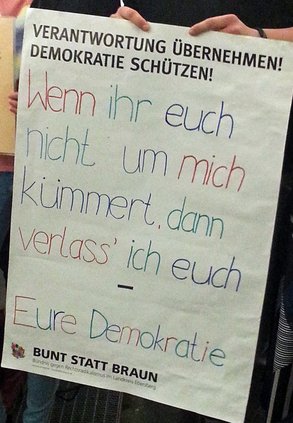 VERANTWORTUNG ÜBERNEHMEN!
DEMOKRATIE SCHÜTZEN!
Wenn ihr euch
nicht um mich
kümmert, dann
verlass' ich euch
–
Eure Demokratie
BUNT STATT BRAUN
Bündnis gegen Rechtsradikalismus im Landkreis Ebersberg